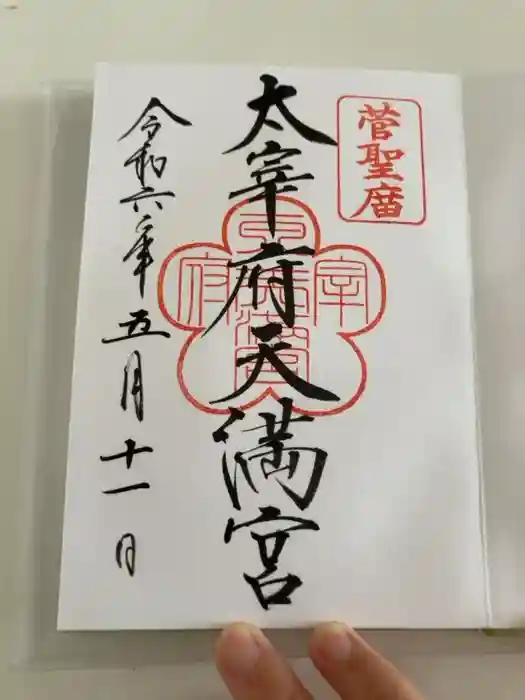 菅聖廟
太宰府天満宮
令和六年五月十一日